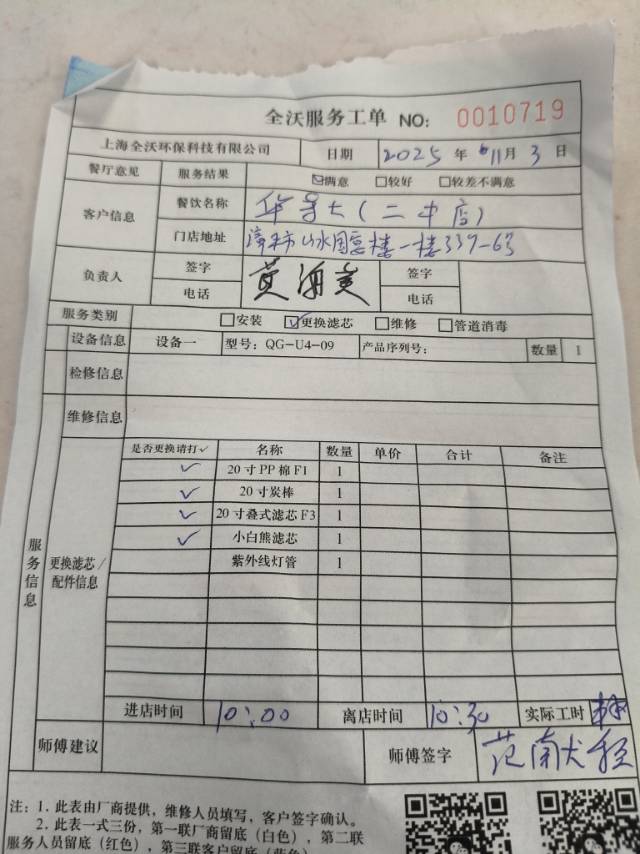 全沃服务工单 NO: 0010719
上海全沃环保科技有限公司 日期 2025 年 11 月 3 日
餐厅意见 服务结果 ☑满意 □较好 □较差不满意
客户信息 餐饮名称 华莱士(二中店)
门店地址 漳平市山水国宾楼一楼337-63
负责人 签字 黄海 签字
电话 电话
服务类别 □安装 ☑更换滤芯 □维修 □管道消毒
设备信息 设备一 型号: QG-U4-09 产品序列号: 数量 1
检修信息
维修信息
服务信息
更换滤芯/配件信息
是否更换请打✓ 名称 数量 单价 合计 备注
✓ 20寸PP棉F1 1
✓ 20寸炭棒 1
✓ 20寸叠式滤芯F3 1
✓ 小白熊滤芯 1
紫外线灯管 1
进店时间 10:00 离店时间 10:30 实际工时
师傅建议 师傅签字 范南
注: 1. 此表由厂商提供,维修人员填写,客户签字确认。
2. 此表一式三份,第一联厂商留底(白色),第二联
服务人员留底(红色),第三联客户留底(蓝色)